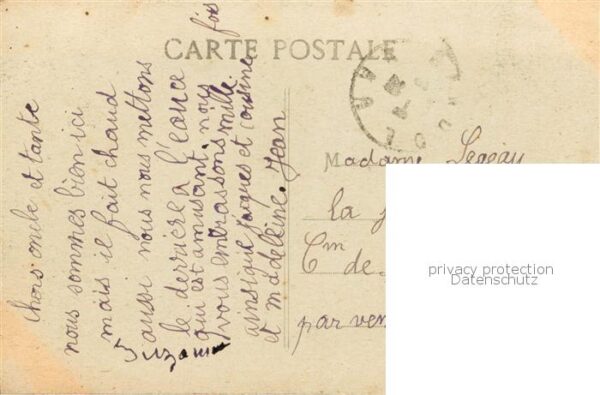 CARTE POSTALE
Chers oncle et tante
nous sommes bien ici
mais il fait chaud
aussi nous nous mettons
le derrière a l'eau ce
qui est amusant. nous
vous embrassons mille fois
ainsi que jacques et cousine
et madeleine. Jean
Suzanne
Madame
la
Cm de
par ven
privacy protection
Datenschutz